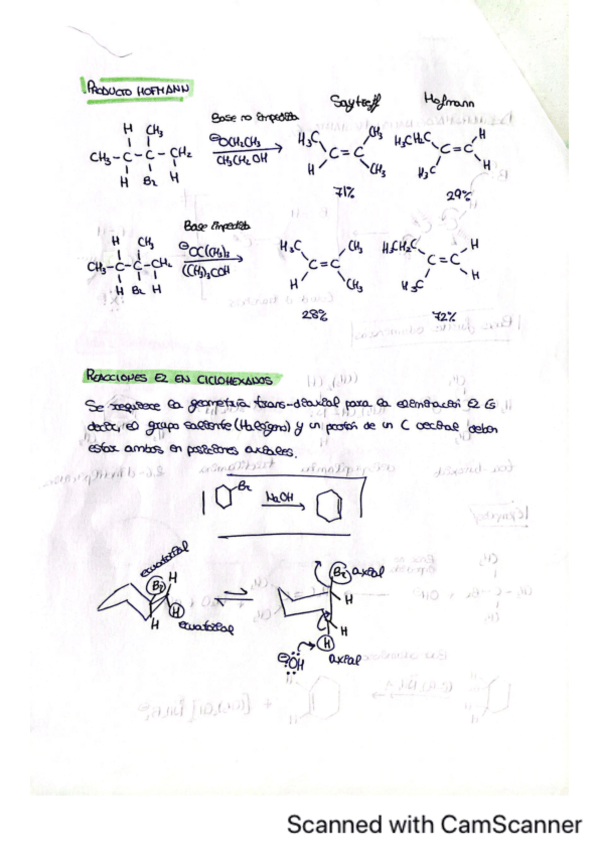 PRODUCTO HOFMANN
Saytzeff Hofmann
Base no impedida
H CH₃
CH₃-C-C-CH₂
H Br H
⊖OCH₂CH₃
CH₃CH₂OH
H₃C CH₃
C=C
H CH₃
71%
H₃CH₂C H
C=C
H₃C H
29%
Base impedida
H CH₃
CH₃-C-C-CH₂
H Br H
⊖OC(CH₃)₂
(CH₃)₃COH
H₃C CH₃
C=C
H CH₃
28%
H₃CH₂C H
C=C
H₃C H
72%
REACCIONES E2 EN CICLOHEXANOS
Se requiere la geometría trans-diaxial para la eliminación E2 Es
decir, el grupo saliente (Halógeno) y un protón de un C vecinal deben
estar ambos en posiciones axiales.
Br NaOH
ecuatorial
Br H
H ecuatorial
H
Br axial
H
H
H
⊖OH axial
Scanned with CamScanner